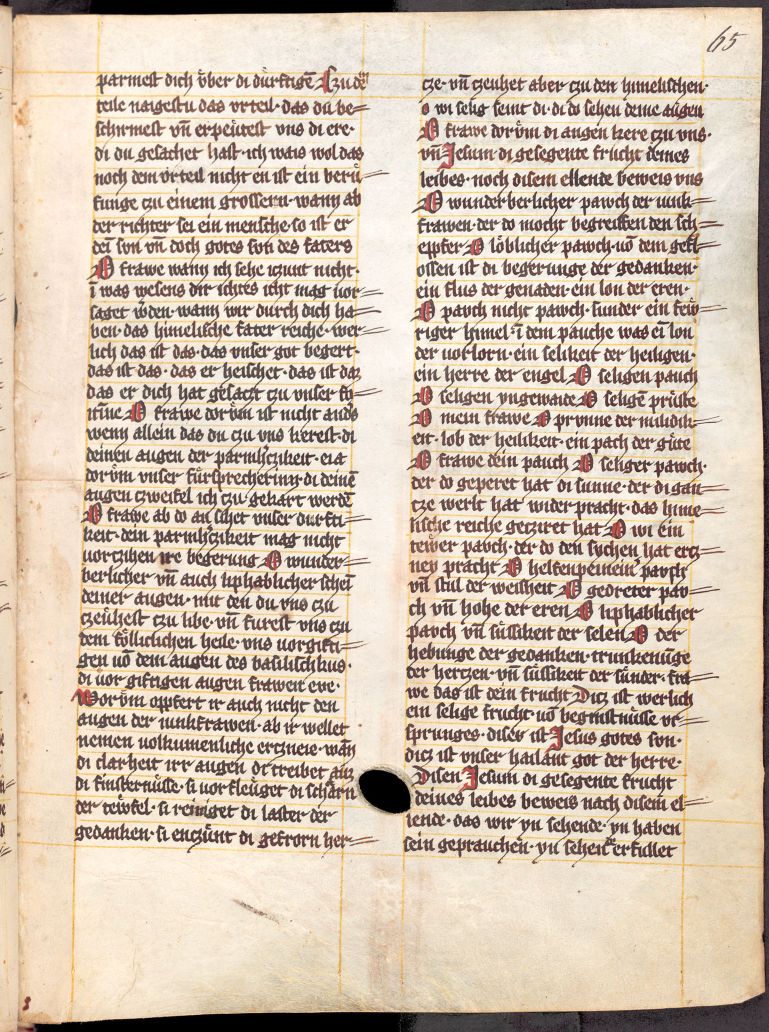 65
parmest dich vͤber di duͤrftigē Czu dē
teile naigestu das vrteil · das du be=
schirmest vn̄ erpeuͤtest vns di ere ·
di du gesachet hast · ich wais wol das
noch dem vrteil nicht en ist ein beruͤ=
funge czu einem grossern · wann ab
der richter sei ein mensche · so ist er
dein son vn̄ doch gotes son des faters
O frawe wann ich sehe iczunt nicht ·
ī was wesens dir ichtes icht mag vor=
saget wͤden · wann wir durch dich ha=
ben · das himelische fater reiche · wer=
lich das ist das · das vnser got begert ·
das ist das · das er heischet · das ist daz
das er dich hat gesaczt czu vnser
O frawe dorvͤm ist nicht anders
wenn allein das du czu vns kerest · di
deinen augen der parmhczikeit · eia
dorvͤm vnser fuͤrsprecherinn di deinē
augen czweifel ich czu gekart werdē
O frawe ab do an sihet vnser durfti=
keit · dein parmhczikeit mag nicht
vorczihen ire begerung O wunder=
berlicher vn̄ auch liphablicher schein
deiner augen · mit den du vns czu
czeuͤhest czu libe · vn̄ furest vns czu
dem koͤllichchen heile · vns vorgifti=
gen vō dem augen des basilischkus ·
di vor giftigen augen frawen eve ·
Worvͤm oppfert ir auch nicht den
augen der iunkfrawen · ab ir wellet
nemen volkumenliche erczneie · wān
di clarheit irr augen di treibet auz
di finsternuͤsse · si vor fleuget di scharn
der teuͤfel · si reiniget di laster der
gedanken · si enczuͤnt di gefrorn her=
cze · vn̄ czeuhet aber czu den himelischen ·
o wi selig seint di · di do sehen deine augen
O frawe dorvͤm di augen kere czu vns ·
vn̄ Jesum di gesegente frucht deines
leibes · noch disem ellende beweis vns
O wunderberlicher pawch der iunk=
frawen · der do mocht begreiffen den sch=
eppfer O loͤblicher pawch · vō dem gefl=
ossen ist di begerunge der gedanken ·
ein flus der genaden · ein lon der eren ·
O pavch nicht pawch · sunder ein few=
riger himel · ī dem pauche was eī lon
der vorlorn · ein selikeit der heiligen ·
ein herre der engel O seligen pauch
O seligen yngewaide O seligē pruͤste
O mein frawe O prvnne der mildik=
eit · lob der heilikeit · ein pach der guͤte
O frawe dein pauch O seliger pawch ·
der do geperet hat di sunne · der di gan=
cze werlt hat wider pracht · das hime=
lische reiche gecziret hat O wi ein
tewͤer pavch · der do den sychen hat ercz=
ney pracht O helfenpeinein pavch
vn̄ stul der weisheit O gedreter pav=
ch vn̄ hohe der eren O liphablicher
pavch vn̄ suͤssikeit der selen O der
hebunge der gedanken · trunkenuͤnge
der herczen · vn̄ suͤssikeit der suͤnder · fra=
we das ist dein frucht Dicz ist werlich
ein selige frucht · vō beginstnuͤsse vr=
sprunges · diser ist Jesus gotes son ·
dicz ist vnser hailant got der herre ·
Disen Jesum di gesegente frucht
deines leibes beweis nach disem el=
lende · das wir yn sehende · yn haben
sein geprauchen · yn sehende erfullet